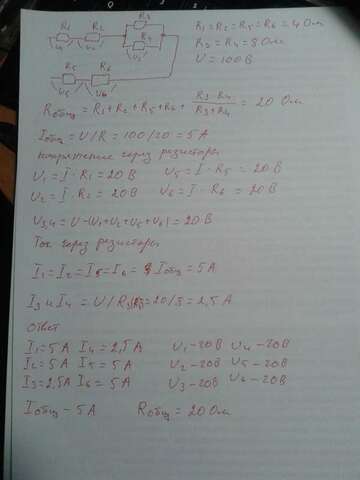 R1 R2 R3
R4
U1 U2 U3
R5 R6
U5 U6
R1 = R2 = R5 = R6 = 4 Ом
R3 = R4 = 8 Ом
U = 100 В
Rобщ = R1 + R2 + R5 + R6 + R3·R4 / R3+R4 = 20 Ом
Iобщ = U/R = 100/20 = 5 А
напряжение через резисторы
U1 = I · R1 = 20 В U5 = I · R5 = 20 В
U2 = I · R2 = 20 В U6 = I · R6 = 20 В
U3,4 = U-(U1+U2+U5+U6) = 20 В
Ток через резисторы
I1 = I2 = I5 = I6 = Iобщ = 5 А
I3 и I4 = U / R3 = 20/8 = 2,5 А
Ответ
I1 = 5 А I4 = 2,5 А U1 - 20В U4 - 20В
I2 = 5 А I5 = 5 А U2 - 20В U5 - 20В
I3 = 2,5 А I6 = 5 А U3 - 20В U6 - 20В
Iобщ - 5 А Rобщ = 20 Ом